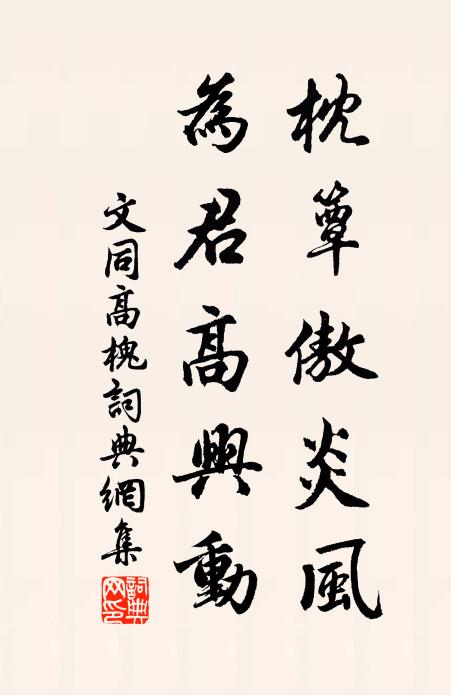 枕簟傲炎風
為君高興動
文同高槐詞典網集
詞典網印